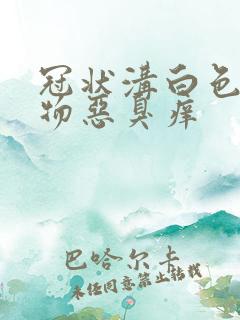 冠状溝白色
物惡臭痒
巴哈尔卡
未经同意禁止转载